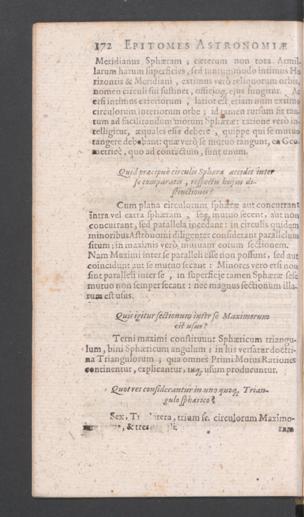 172 EPITOMES ASTRONOMIÆ
Meridianus Sphæram; cæterum non tota Armil-
larum harum superficies, sed tantummodo intimus Ho
rizontis & Meridiani, extimus verò reliquorum orbis,
nomen circuli sui sustinet, officioq, ejus fungitur.
etsi intimus exteriorum, latior est etiam num extimo
circulorum interiorum orbe; tamen rursum sit tan-
tum ad facilitandum motum Sphæræ: ratione verò in-
telligitur, æquales esse debere, quippe qui se mutuo
tangere debebant: quæ verò se mutuo tangunt, ea Geo
metricè, quo ad contactum, sunt unum.
Quid præcipuè circulis Sphæræ accidit inter
se comparatis, respectu hujus di-
stinctionis?
Cum plana circulorum sphæræ aut concurrant
intra vel extra sphæram, seq, mutuo secent, aut non
concurrant, sed parallela incedant: in circulis quidem
minoribus Astronomi diligenter considerant parallelum
situm; in maximis verò, mutuam eorum sectionem.
Nam Maximi inter se paralleli esse non possunt, sed aut
coincidunt aut se mutuo secant: Minores verò etsi non
sunt paralleli inter se, in superficie tamen Sphæræ sese
mutuo non semper secant: nec magnus sectionum illa-
rum est usus.
Quis igitur sectionum inter se Maximorum
est usus?
Terni maximi constituunt Sphæricum triangu-
lum, bini Sphæricum angulum: in his versatur doctri-
na Triangulorum, qua omnes Primi Motus Rationes
continentur, explicantur, inq, usum producuntur.
Quot res considerantur in unoquoq, Trian-
gulo sphærico?
Sex, Tria latera, trium sc. circulorum Maximo-
& tres